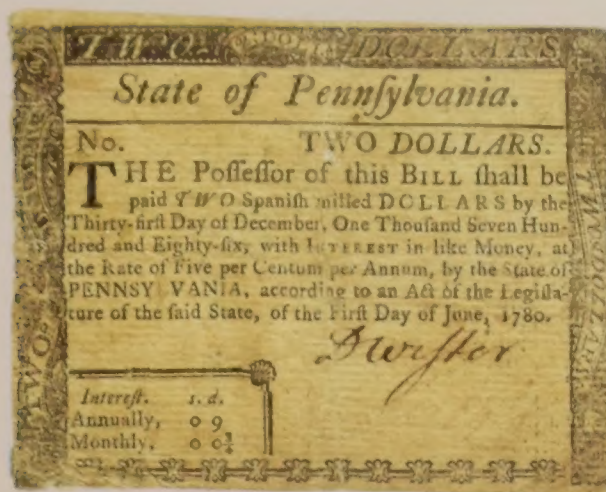 TWO DOLLARS
State of Pennſylvania.
No. TWO DOLLARS.
THE Poſſeſſor of this BILL ſhall be
paid TWO Spaniſh milled DOLLARS by the
Thirty-firſt Day of December, One Thouſand Seven Hun-
dred and Eighty-ſix, with INTEREST in like Money, at
the Rate of Five per Centum per Annum, by the State of
PENNSYLVANIA, according to an Act of the Legiſla-
ture of the ſaid State, of the Firſt Day of June, 1780.
Intereſt. s. d.
Annually, 0 9
Monthly, 0 0¾
TWO
TWO DOLLARS